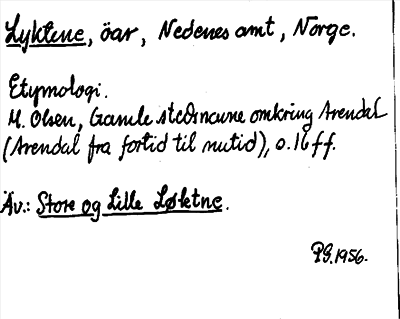 Lyktene, öar, Nedenes amt, Norge.
Etymologi.
M. Olsen, Gamle stedsnavne omkring Arendal
(Arendal fra fortid til nutid), s. 16 ff.
Äv.: Store og Lille Løktne.
P.G. 1956.